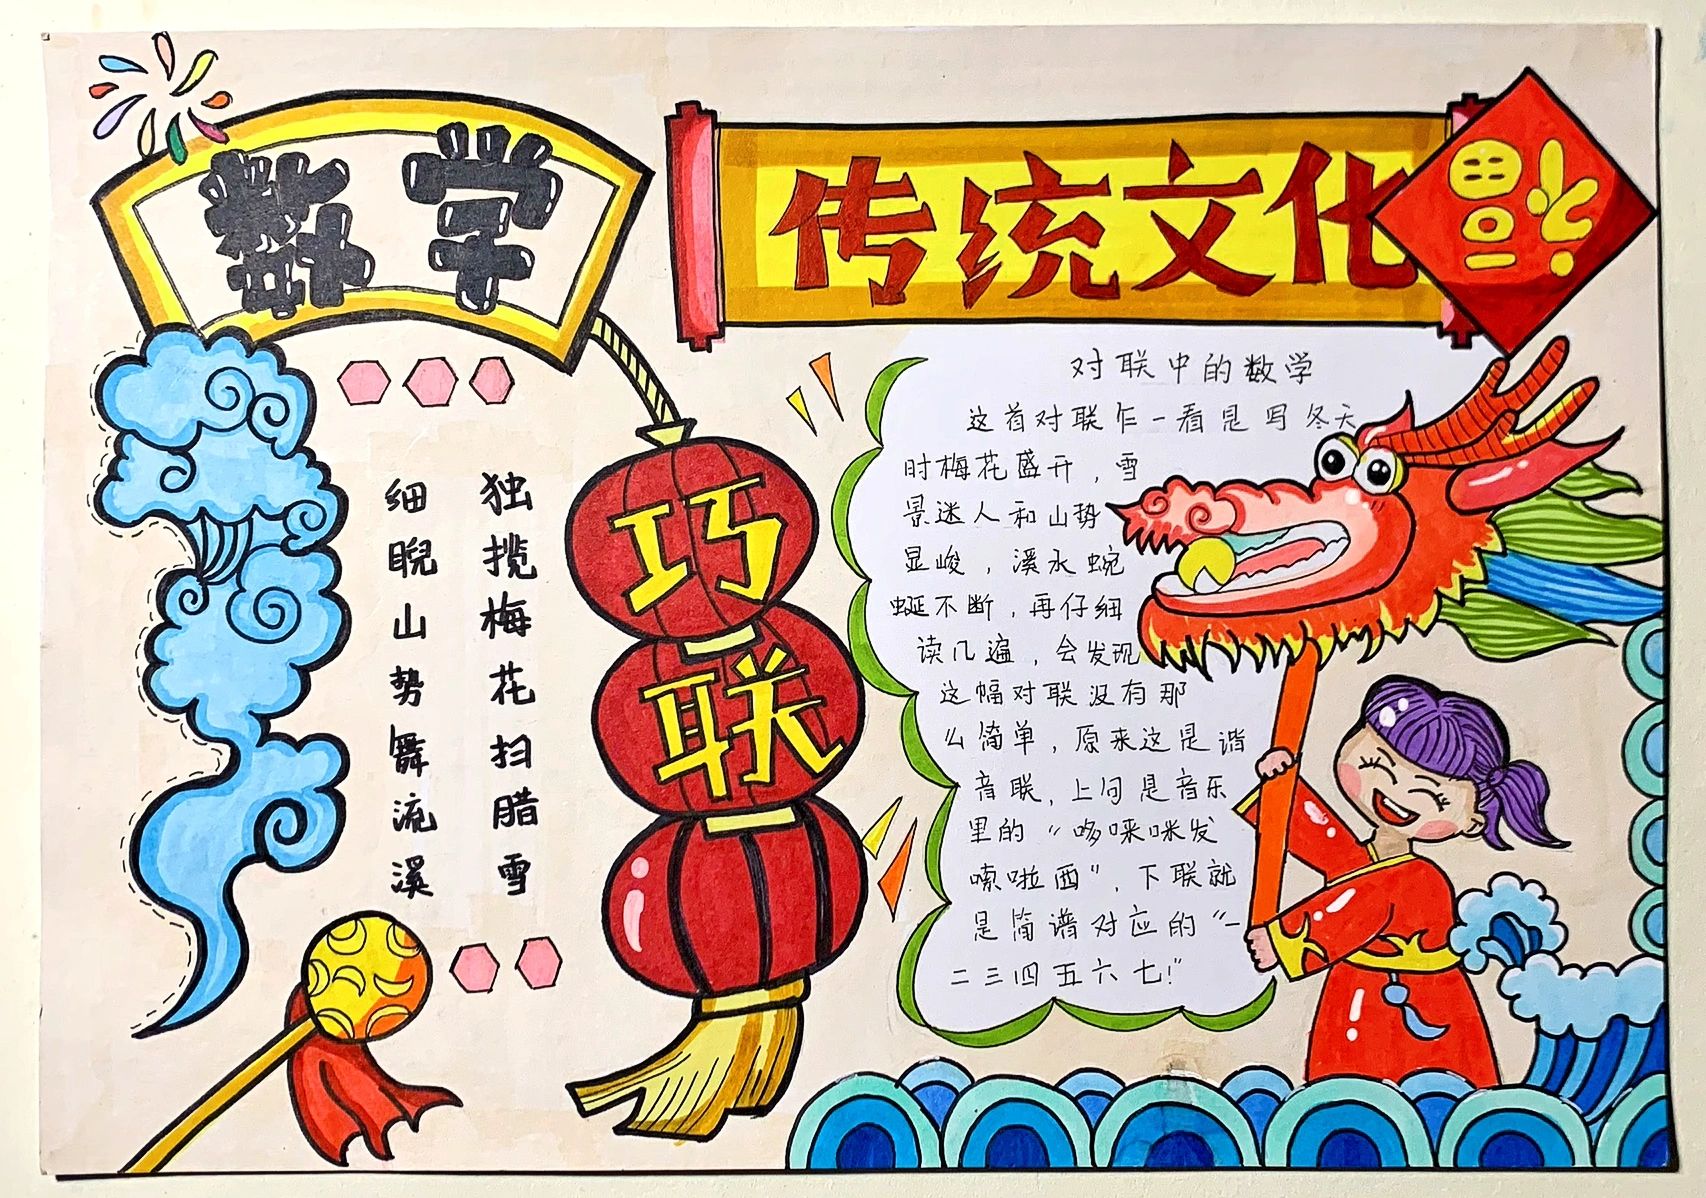 数学
传统文化
福
巧联
独揽梅花扫腊雪
细睨山势舞流溪
对联中的数学
这首对联乍一看是写冬天
时梅花盛开，雪
景迷人和山势
显峻，溪水蜿
蜒不断，再仔细
读几遍，会发现
这幅对联没有那
么简单，原来这是谐
音联，上问是音乐
里的“哆唻咪发
嗦啦西”，下联就
是简谱对应的“一
二三四五六七！”